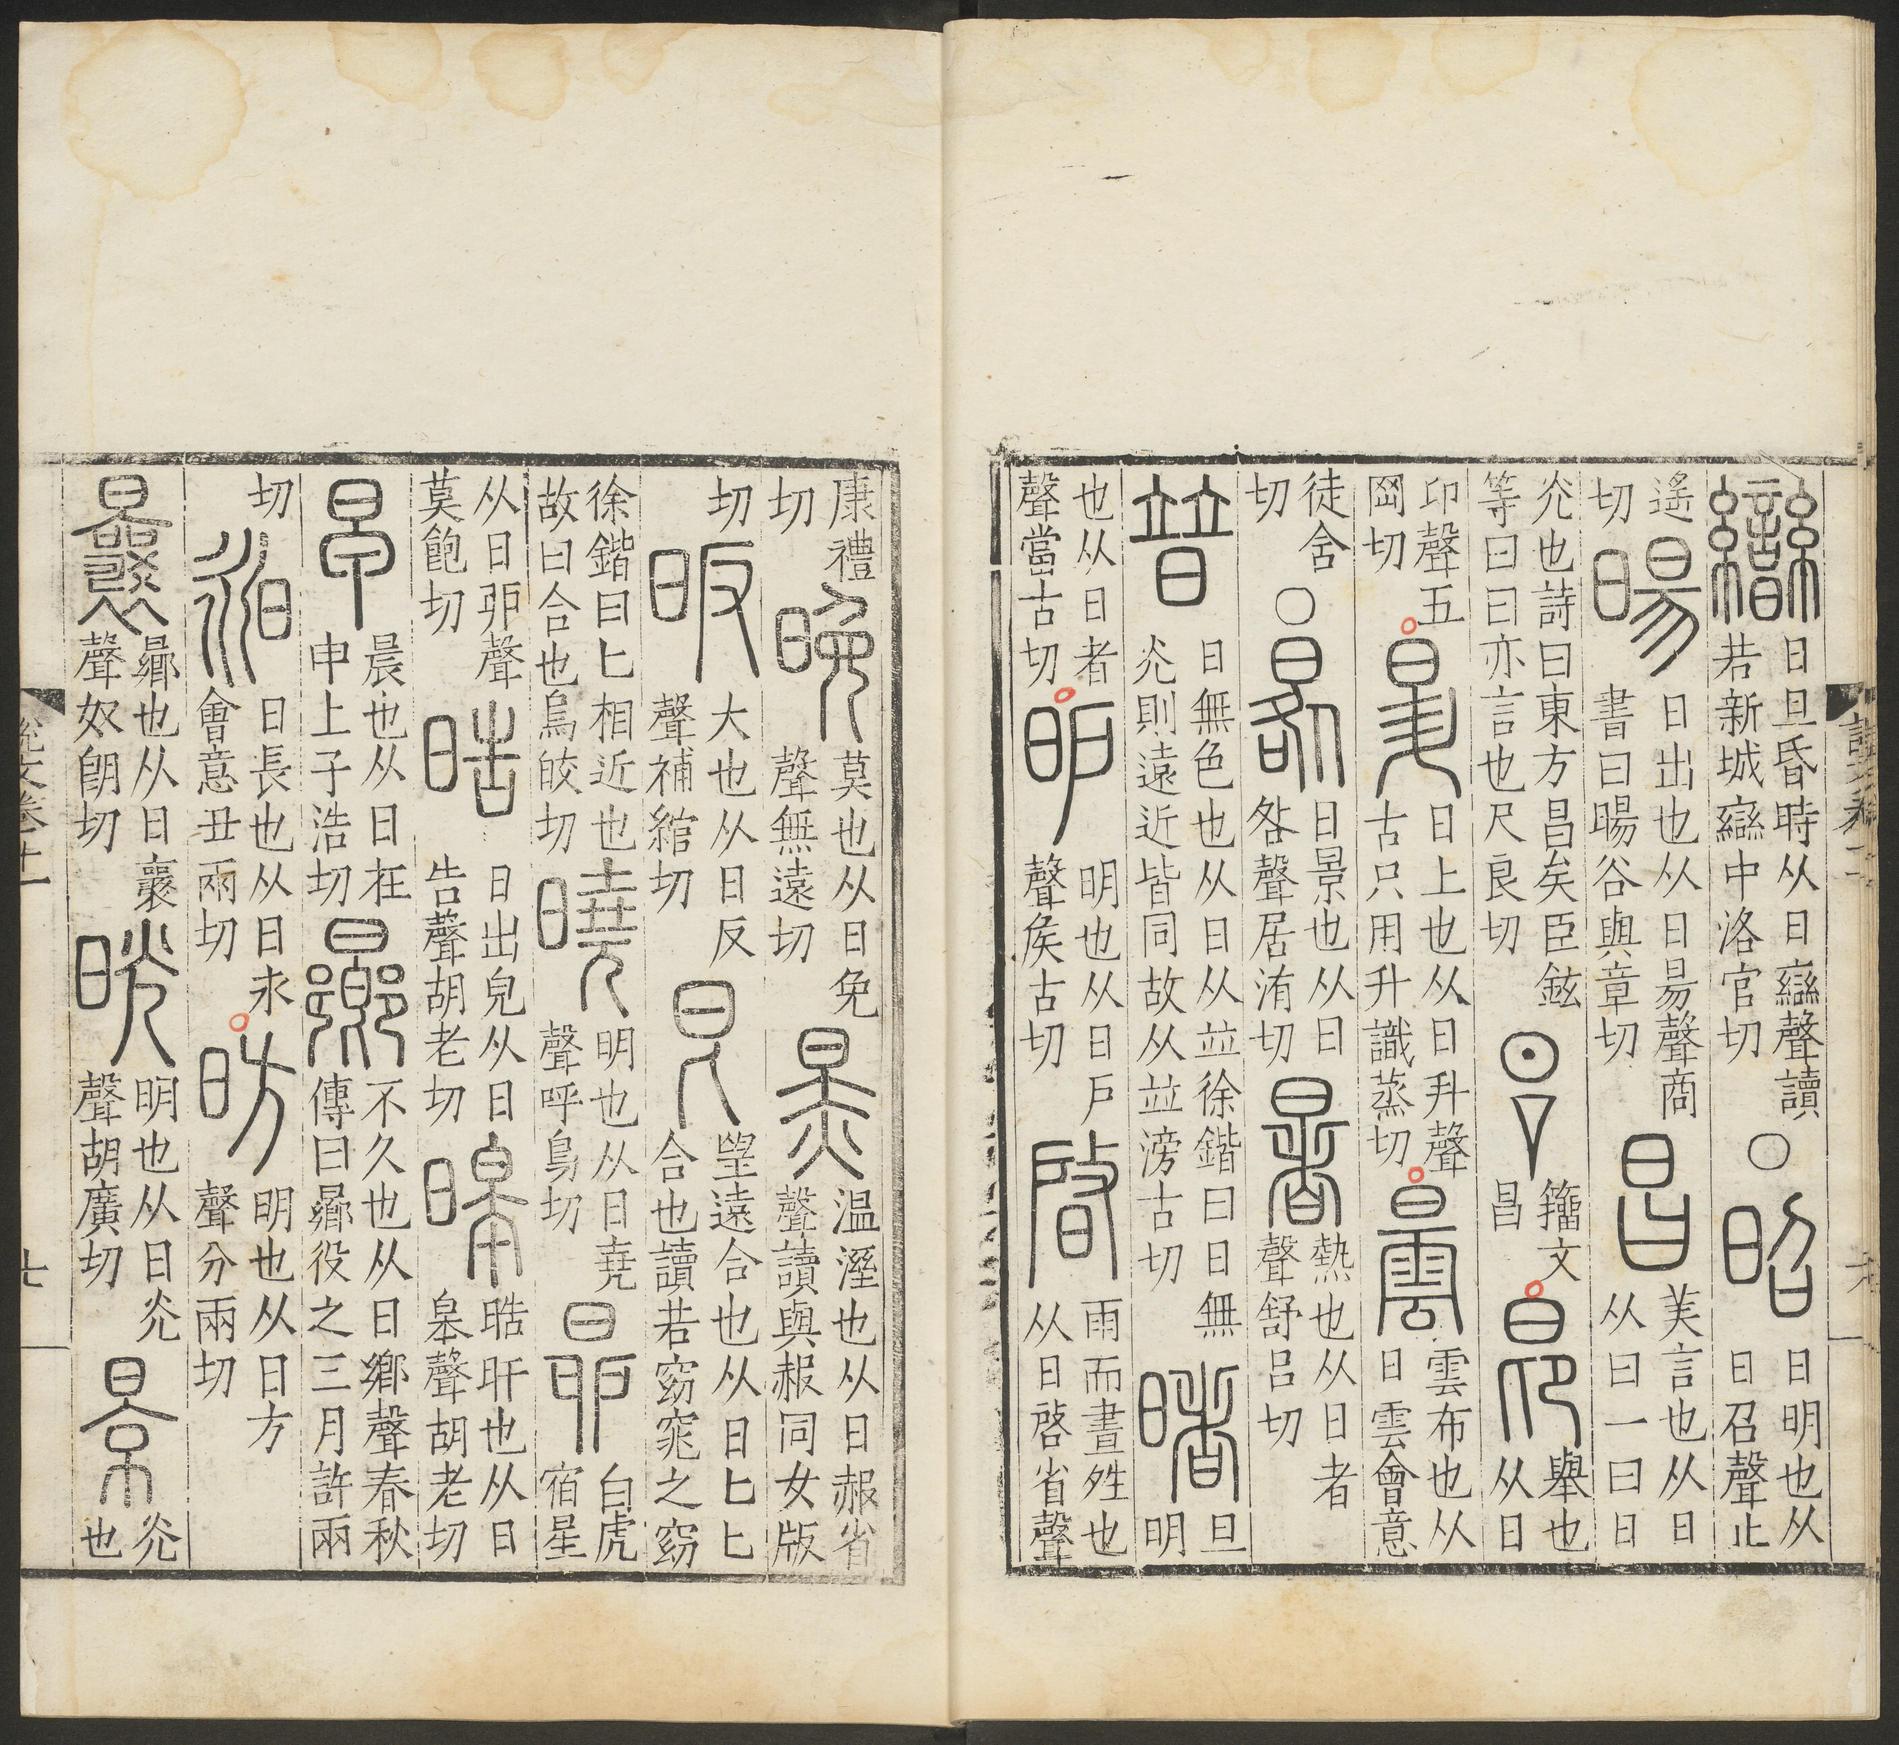 曫日旦昏時从日䜌聲讀若新城䜌中洛官切○昭日明也从日召聲止
遙切暘日出也从日昜聲商書曰暘谷與章切昌美言也从日从曰一曰日
光也詩曰東方昌矣臣鉉等曰曰亦言也尺良切籀文昌昂舉也从日
卬聲五岡切昇日上也从日升聲古只用升識蒸切曇雲布也从日雲會意
徒含切○晷日景也从日咎聲居洧切暑熱也从日者聲舒呂切
普日無色也从日从竝徐鍇曰日無光則遠近皆同故从竝滂古切睹旦明
也从日者聲當古切昈明也从日戶聲矦古切啓雨而晝姓也从日啓省聲
康禮切晚莫也从日免聲無遠切㬉温溼也从日赧省聲讀與赧同女版
切昄大也从日反聲補綰切㫐望遠合也从日匕匕合也讀若窈窕之窈
徐鍇曰匕相近也故曰合也烏皎切曉明也从日堯聲呼鳥切昴白虎宿星
从日卯聲莫飽切晧日出皃从日告聲胡老切暤晧旰也从日皋聲胡老切
早晨也从日在甲上子浩切曏不久也从日鄉聲春秋傳曰曏役之三月許兩
切昶日長也从日永會意丑兩切昉明也从日方聲分兩切
曩曏也从日襄聲奴朗切晄明也从日光聲胡廣切景光也
說文卷十一
七